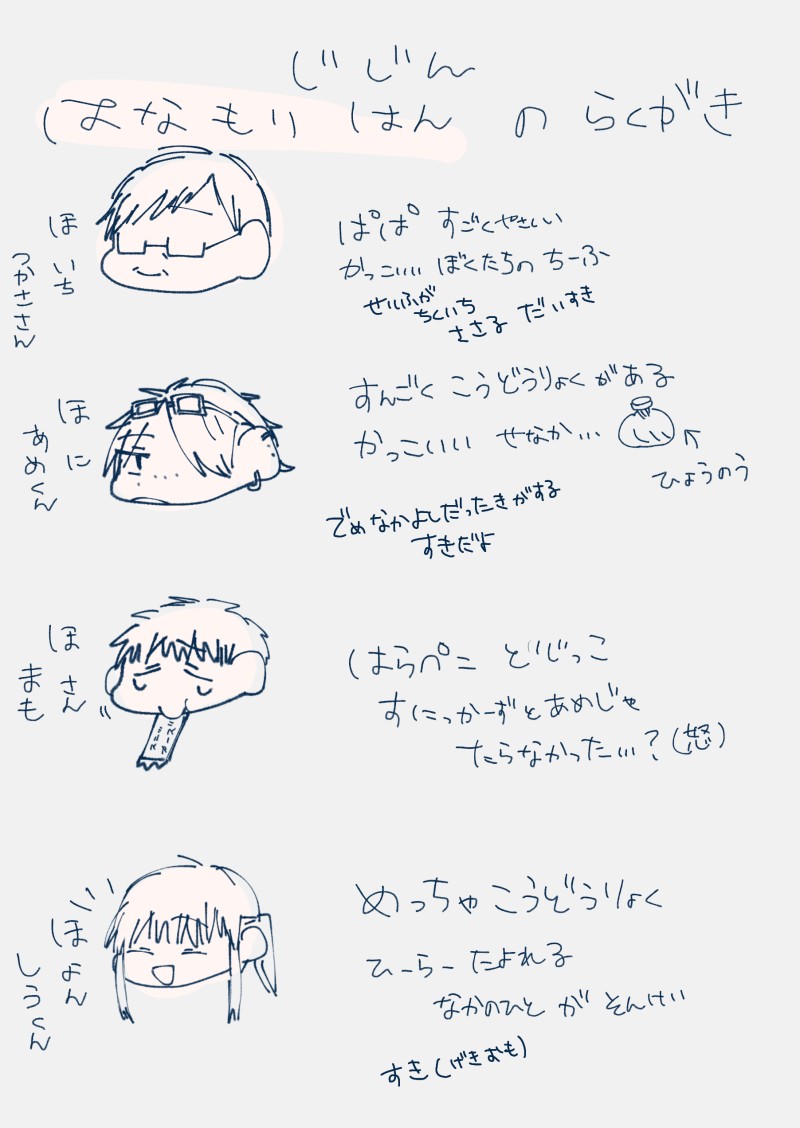 じじん
はなもりはん の らくがき
ほいち
つかささん
ぱぱ すごくやさしい
かっこいい ぼくたちの ちーふ
せいふが
ちくいち
ささる だいすき
ほに
あめくん
すんごく こうどうりょくがある
かっこいい せなか…
ひょうのう
でめ なかよしだったきがする
すきだよ
ほさん
まも
はらぺこ どじっこ
すにっかーずとあめじゃ
たらなかった…?(怒)
ほよん
しうくん
めっちゃ こうどうりょく
ひーらー たよれる
なかのひと が そんけい
すき(げきおも)